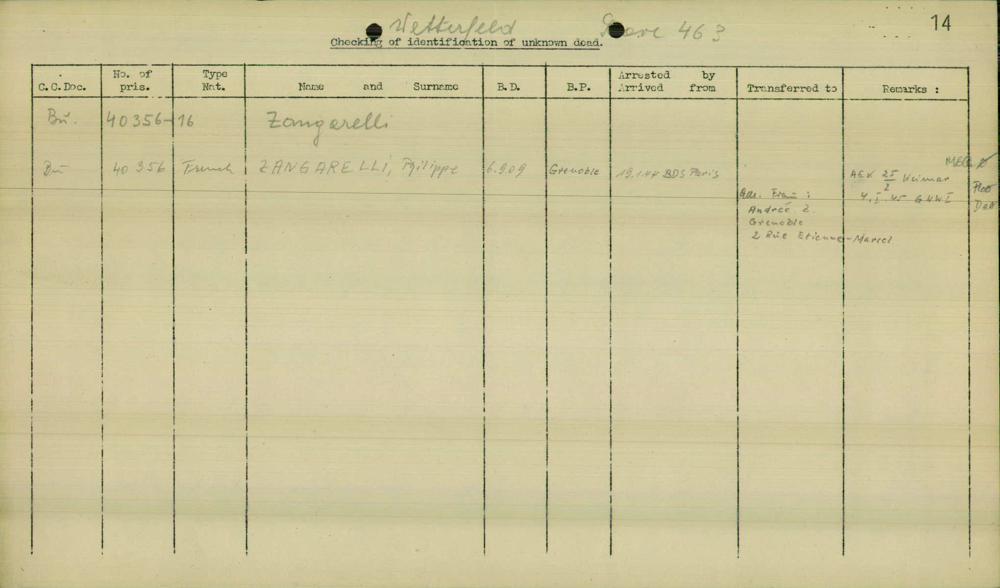 14
Wetterfeld Grave 463
Checking of identification of unknown dead.
C.C.Doc. No. of pris. Type Nat. Name and Surname B.D. B.P. Arrested by Arrived from Transferred to Remarks :
Bu. 40356-16 Zangarelli
Bu 40356 French ZANGARELLI, Philippe 6.9.09 Grenoble 19.1.44 BDS Paris
Weimar
4.I.45
Adr. Frau :
Andrée Z.
Grenoble
2 Rue Etienne-Marcel